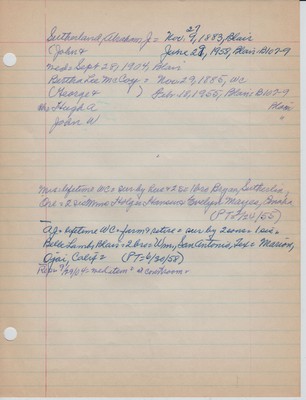 Sutherland, Abraham J = Nov. 27, 1883, Blair
(John & June 28, 1958, Blair B107-9
med = Sept 28, 1904, Blair
Bertha Lee McCoy = Nov 29, 1885, WC
(George & ) Feb. 18, 1955, Blair B107-9
the Hugh A Blair
John W
Mrs = lifetime WC = sur by hus = 2 so 1 bro Bryan, Sutherlin,
Ore = 2 sis Mmes Holger Hansen & Evelyn Mayes, Omaha
(PT= 2/24/55)
Aj = lifetime WC = farm & retire = sur by 2 sons = 1 sis =
Belle Lundt, Blair = 2 bro = Wm, San Antonio, Tex = Marion,
Ojai, Calif = (PT=6/30/58)
9/29/04 = med item